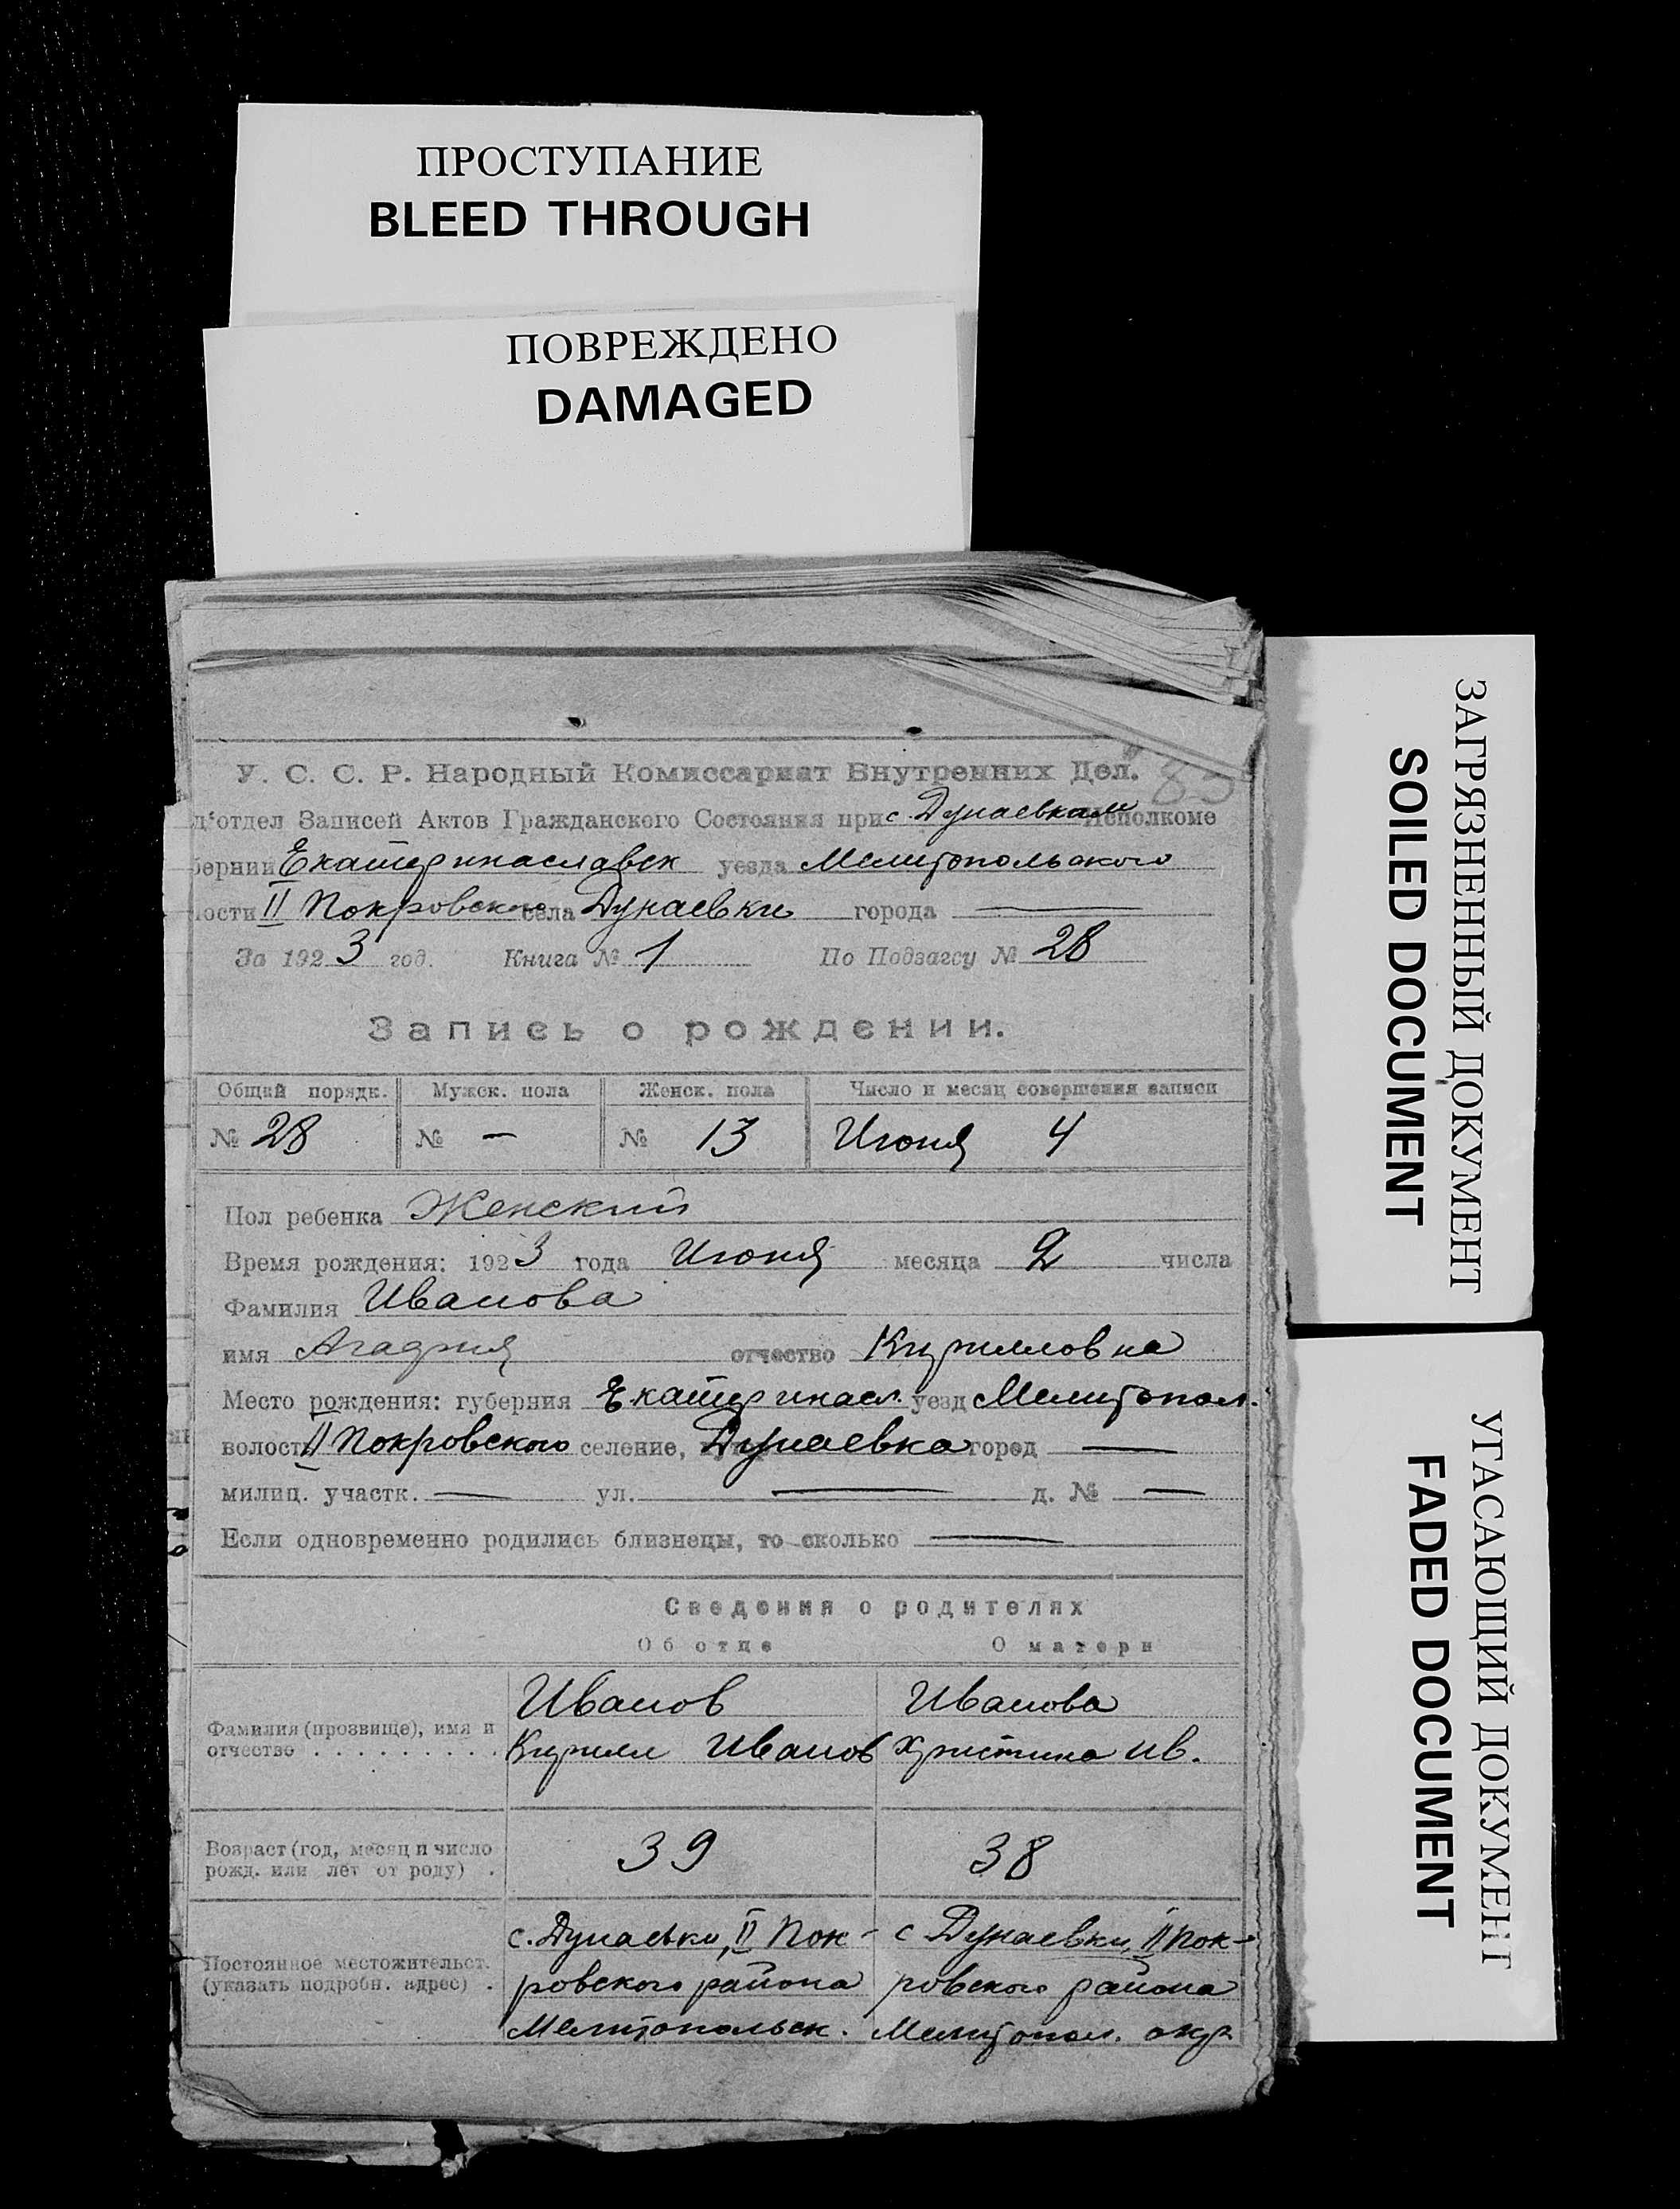 ПРОСТУПАНИЕ
BLEED THROUGH
ПОВРЕЖДЕНО
DAMAGED
У. С. С. Р. Народный Комиссариат Внутренних Дел.
д'отдел Записей Актов Гражданского Состояния при с. Дунаевком Исполкоме
бернии Екатеринаславск уезда Мелитопольского
ости II Покровского села Дунаевки города —
За 1923 год. Книга № 1 По Подзагсу № 28
Запись о рождении.
Общий порядк. Мужск. пола Женск. пола Число и месяц совершения записи
№ 28 № — № 13 Июня 4
Пол ребенка Женский
Время рождения: 1923 года Июня месяца 2 числа
Фамилия Иванова
имя Агафия отчество Кирилловна
Место рождения: губерния Екатеринасл. уезд Мелитопол.
волость II Покровского селение, Дунаевка город —
милиц. участк. — ул. — д. № —
Если одновременно родились близнецы, то сколько —
Сведения о родителях
Об отце О матери
Фамилия (прозвище), имя и отчество . . . . . . . . . .
Иванов
Кирилл Иванов
Иванова
Христина Ив.
Возраст (год, месяц и число
рожд. или лет от роду) .
39 38
Постоянное местожительст.
(указать подробн. адрес) .
с. Дунаевки, II Пок-
ровского района
Мелитопольск.
с Дунаевки, II Пок-
ровского района
Мелитопол. окр.
ЗАГРЯЗНЕННЫЙ ДОКУМЕНТ
SOILED DOCUMENT
УГАСАЮЩИЙ ДОКУМЕНТ
FADED DOCUMENT